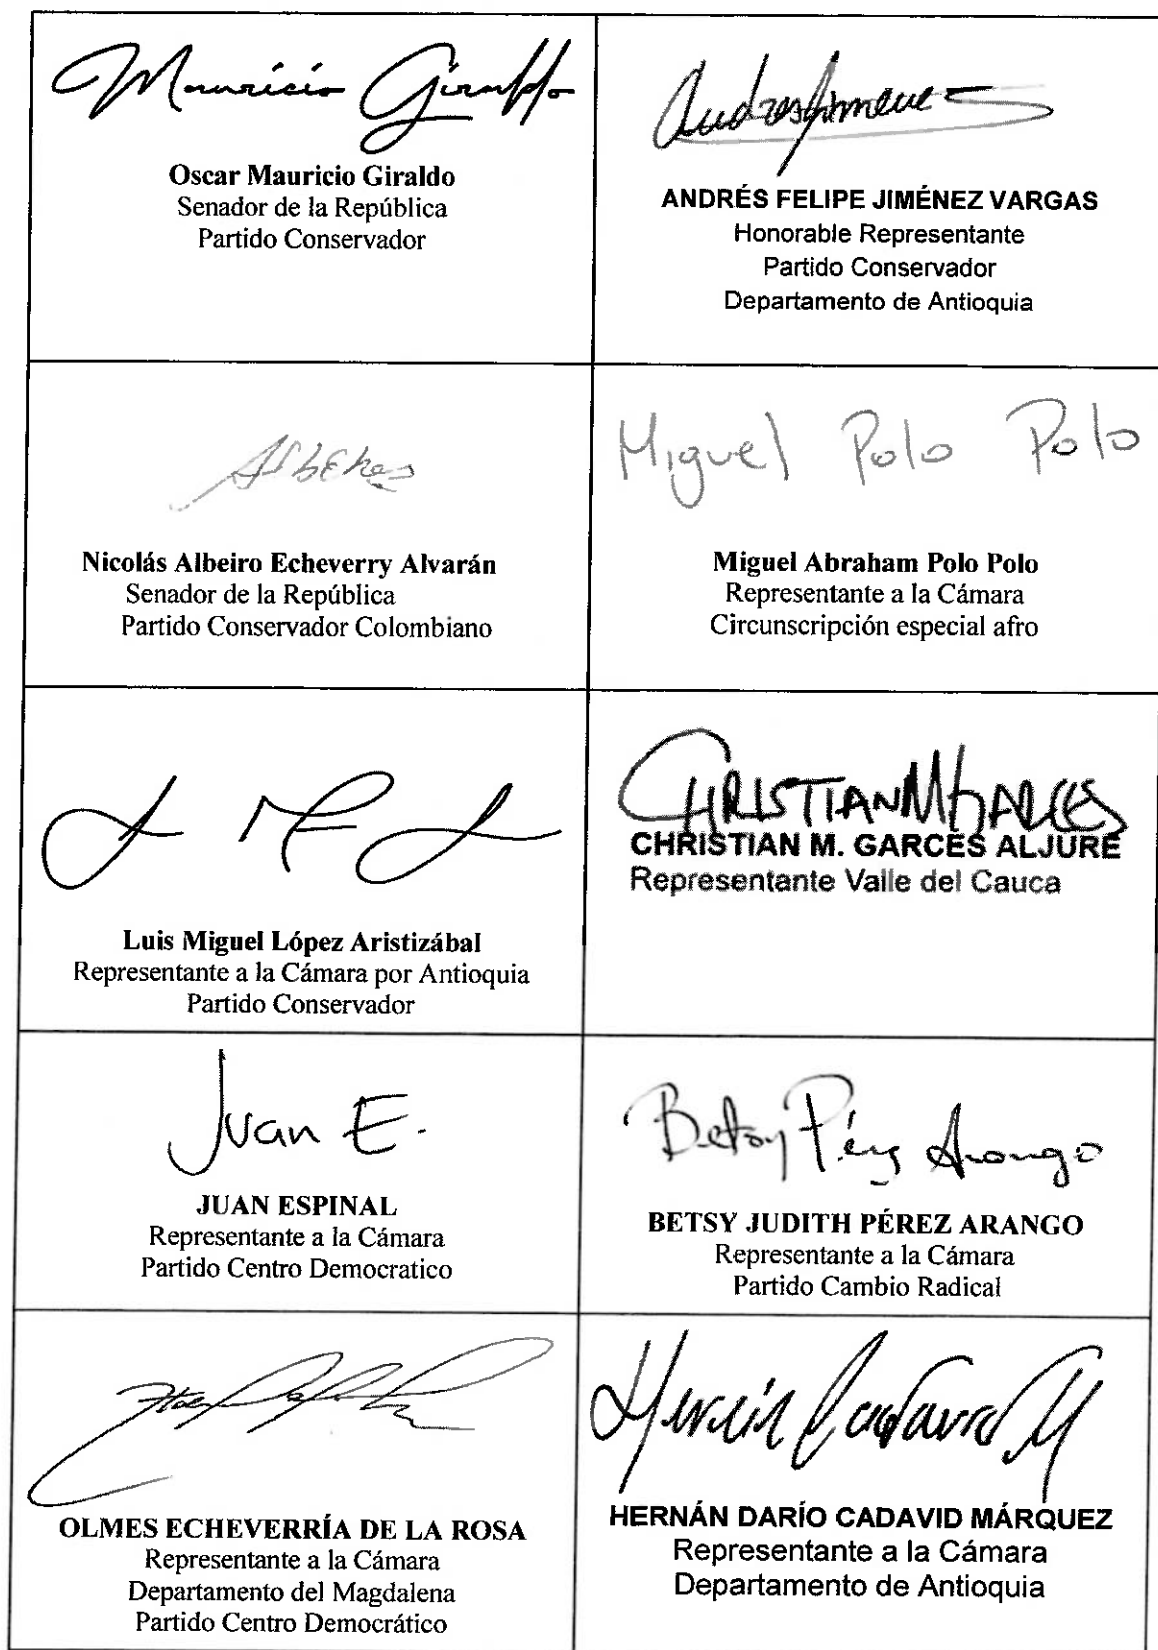 Mauricio Giraldo
Oscar Mauricio Giraldo
Senador de la República
Partido Conservador
Andres Jimenez
ANDRÉS FELIPE JIMÉNEZ VARGAS
Honorable Representante
Partido Conservador
Departamento de Antioquia
Nicolás Albeiro Echeverry Alvarán
Senador de la República
Partido Conservador Colombiano
Miguel Polo Polo
Miguel Abraham Polo Polo
Representante a la Cámara
Circunscripción especial afro
Luis Miguel López Aristizábal
Representante a la Cámara por Antioquia
Partido Conservador
CHRISTIAN M GARCES
CHRISTIAN M. GARCES ALJURE
Representante Valle del Cauca
Juan E.
JUAN ESPINAL
Representante a la Cámara
Partido Centro Democratico
Betsy Pérez Arango
BETSY JUDITH PÉREZ ARANGO
Representante a la Cámara
Partido Cambio Radical
OLMES ECHEVERRÍA DE LA ROSA
Representante a la Cámara
Departamento del Magdalena
Partido Centro Democrático
Hernán Cadavid M
HERNÁN DARÍO CADAVID MÁRQUEZ
Representante a la Cámara
Departamento de Antioquia